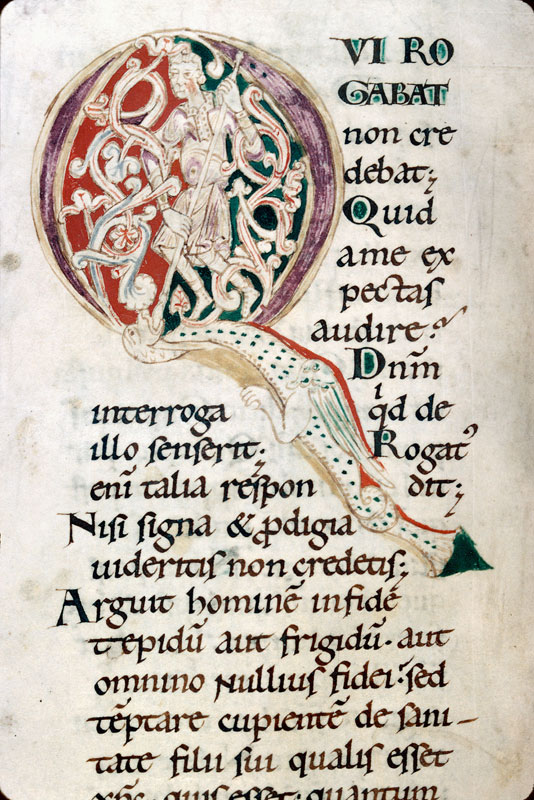 QVI RO
GABAT
non cre
debat;
Quid
ame ex
pectas
audire?
Dnm̄
interroga qd de
illo senserit; Rogat᾽
enī talia respon dit;
Nisi signa & ꝓdigia
uideritis non credetis;
Arguit hominē infidē
tepidū aut frigidū. aut
omnino nullius fidei: sed
tēptare cupientē de sani-
tate filii sui qualis esset
xp̄c. quis esset. quantum